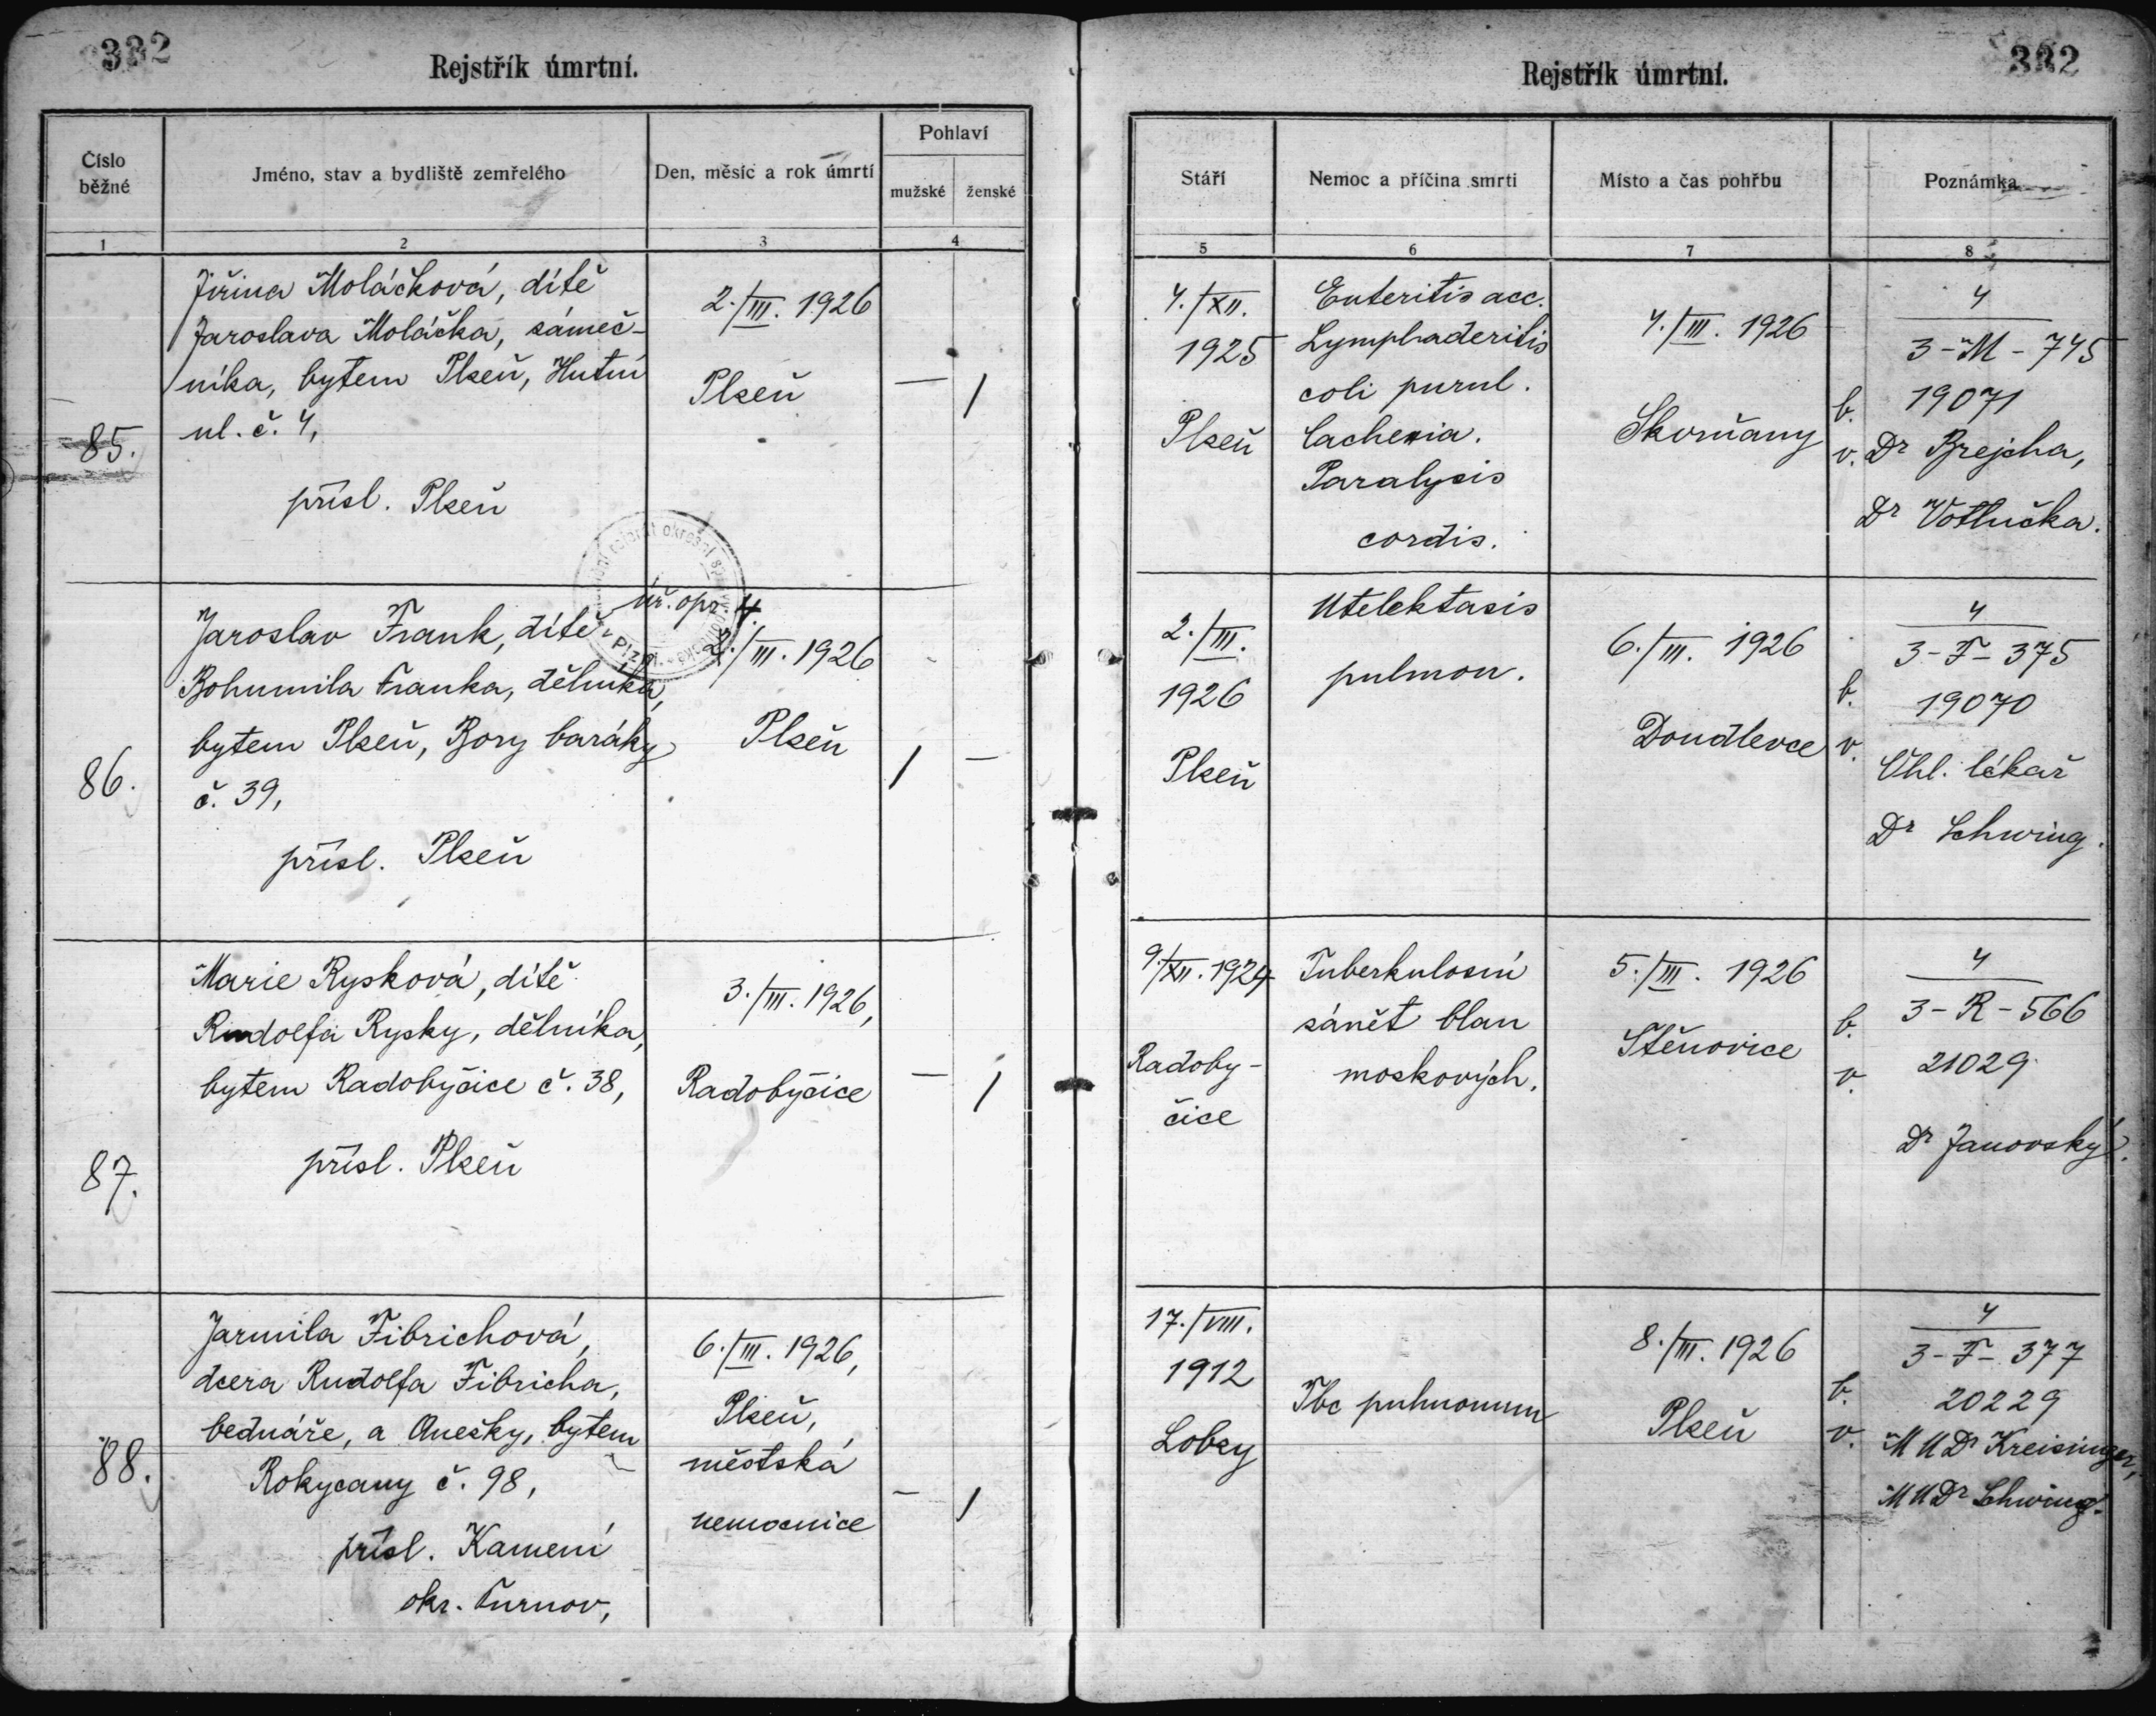 332
Rejstřík úmrtní.
Číslo běžné
Jméno, stav a bydliště zemřelého
Den, měsíc a rok úmrtí
Pohlaví
mužské
ženské
1
2
3
4
Jiřina Moláčková, dítě
Jaroslava Moláčka, zámeč-
níka, bytem Plzeň, Hutní
ul. č. 4,
85.
přísl. Plzeň
2./III. 1926
Plzeň
— /
úř. opr. 4.
Jaroslav Frank, dítě
Bohumila Franka, dělníka,
bytem Plzeň, Bory baráky
86.
č. 39,
přísl. Plzeň
/III. 1926
Plzeň
/ —
Marie Rysková, dítě
Rudolfa Rysky, dělníka,
bytem Radobyčice č. 38,
87.
přísl. Plzeň
3./III. 1926,
Radobyčice
— /
Jarmila Fibrichová,
dcera Rudolfa Fibricha,
bednáře, a Anežky, bytem
88.
Rokycany č. 98,
přísl. Kamení
okr. Turnov,
6./III. 1926,
Plzeň,
městská
nemocnice
— /
332
Rejstřík úmrtní.
Stáří
Nemoc a příčina smrti
Místo a čas pohřbu
Poznámka
5
6
7
8
4./XII.
1925
Plzeň
Enteritis acc.
Lymphaderitis
coli purul.
Cachexia.
Paralysis
cordis.
4./III. 1926
Skvrňany
4
3-M-745
b. 19071
v. Dr Brejcha,
Dr Votlučka.
2./III.
1926
Plzeň
Atelektasis
pulmon.
6./III. 1926
Doudlevce
4
3-F-375
b. 19070
v. Ohl. lékař
Dr Schwing.
9./XII. 1924
Radoby-
čice
Tuberkulosní
zánět blan
moskových.
5./III. 1926
Štěnovice
4
3-R-566
b. 21029
v.
Dr Janovský.
17./VIII.
1912
Lobzy
Tbc pulmonum
8./III. 1926
Plzeň
4
3-F-377
b. 20229
v. MUDr Kreisinger,
MUDr Schwing.